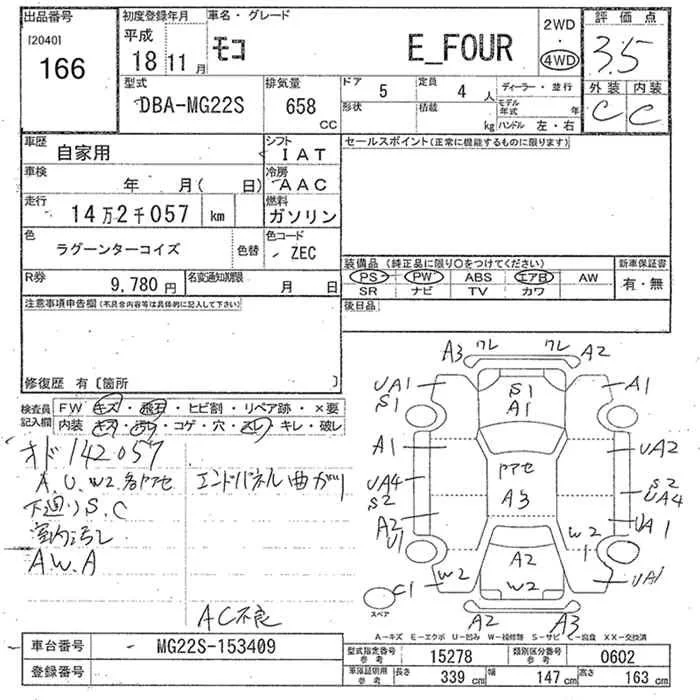 出品番号
[2040]
166
初度登録年月
平成
18 11 月
車名・グレード
モコ E_FOUR
2WD
・
4WD
評価点
3.5
外装 内装
C C
型式
DBA-MG22S
排気量
658
CC
ドア
5
定員
4 人
形状
積載
kg
ディーラー・並行
モデル年式 年
ハンドル 左・右
車歴
自家用
シフト
IAT
車検
年 月( 日)
冷房
AAC
走行
14万2千057 km
燃料
ガソリン
色
ラグーンターコイズ
色替
色コード
ZEC
R券
9,780 円
名変通知期限
月 日
セールスポイント(正常に機能するものに限ります)
装備品 (純正品に限り○をつけてください)
PS PW ABS エアB AW
SR ナビ TV カワ
新車保証書
有・無
後日品
注意事項申告欄(不具合内容等は具体的に記入して下さい)
修復歴 有 [箇所 ]
検査員
記入欄
FW キズ・飛石・ヒビ割・リペア跡・×要
内装 キズ・汚れ・コゲ・穴・スレ・キレ・破レ
オド142057
A.U.W2.各所アセ
エンドパネル曲がり
下廻りS.C
室内汚レ
A.W.A
AC不良
A3 ワレ ワレ A2
UA1
S1
S1
A1
A1
A1
UA2
UA4
S2
アセ
A3
S2
UA4
A2
U1
UA1
W2
1
W2
A2
W2
UA1
C1
スペア
A2 A3
A-キズ E-エクボ U-凹み W-補修跡 S-サビ C-腐食 XX-交換済
車台番号
MG22S-153409
登録番号
型式指定番号
参考
15278
類別区分番号
参考
0602
車庫証明用
参考
長さ
339 cm
幅
147 cm
高さ
163 cm